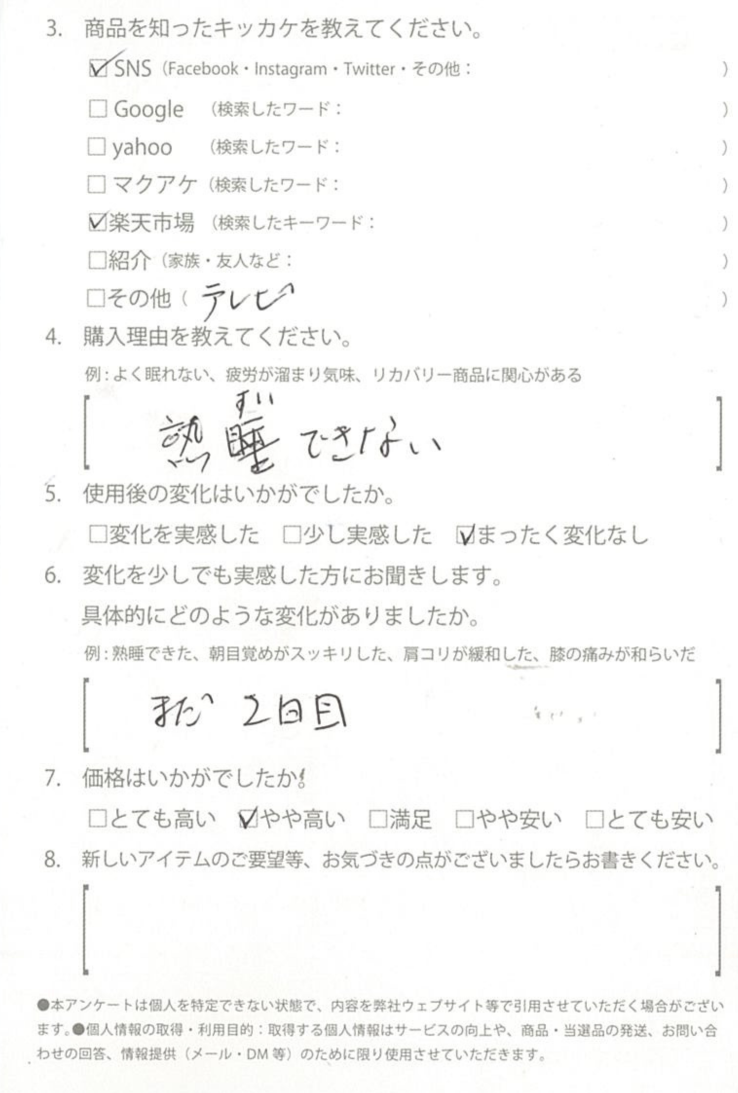 3. 商品を知ったキッカケを教えてください。
☑SNS（Facebook・Instagram・Twitter・その他： ）
□Google （検索したワード： ）
□yahoo （検索したワード： ）
□マクアケ（検索したワード： ）
☑楽天市場 （検索したキーワード： ）
□紹介（家族・友人など： ）
□その他（ テレビ ）
4. 購入理由を教えてください。
例：よく眠れない、疲労が溜まり気味、リカバリー商品に関心がある
ずい
熟睡できない
5. 使用後の変化はいかがでしたか。
□変化を実感した □少し実感した ☑まったく変化なし
6. 変化を少しでも実感した方にお聞きします。
具体的にどのような変化がありましたか。
例：熟睡できた、朝目覚めがスッキリした、肩コリが緩和した、膝の痛みが和らいだ
まだ 2日目
7. 価格はいかがでしたか。
□とても高い ☑やや高い □満足 □やや安い □とても安い
8. 新しいアイテムのご要望等、お気づきの点がございましたらお書きください。
●本アンケートは個人を特定できない状態で、内容を弊社ウェブサイト等で引用させていただく場合がござい
ます。●個人情報の取得・利用目的：取得する個人情報はサービスの向上や、商品・当選品の発送、お問い合
わせの回答、情報提供（メール・DM 等）のために限り使用させていただきます。